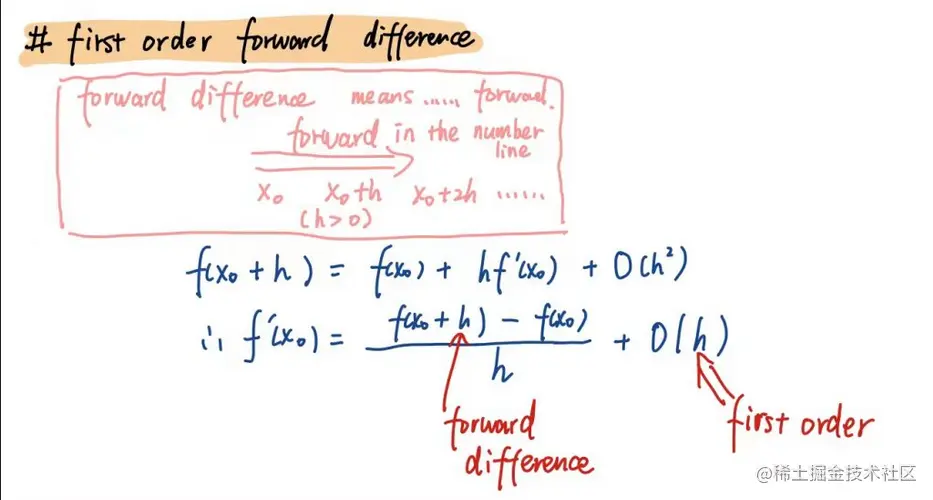 # first order forward difference
forward difference means ...... forward.
forward in the number
line
x₀ x₀+h x₀+2h ......
(h>0)
f(x₀+h) = f(x₀) + hf'(x₀) + O(h²)
∴ f'(x₀) = (f(x₀+h) - f(x₀)) / h + O(h)
forward
difference
first order
@稀土掘金技术社区